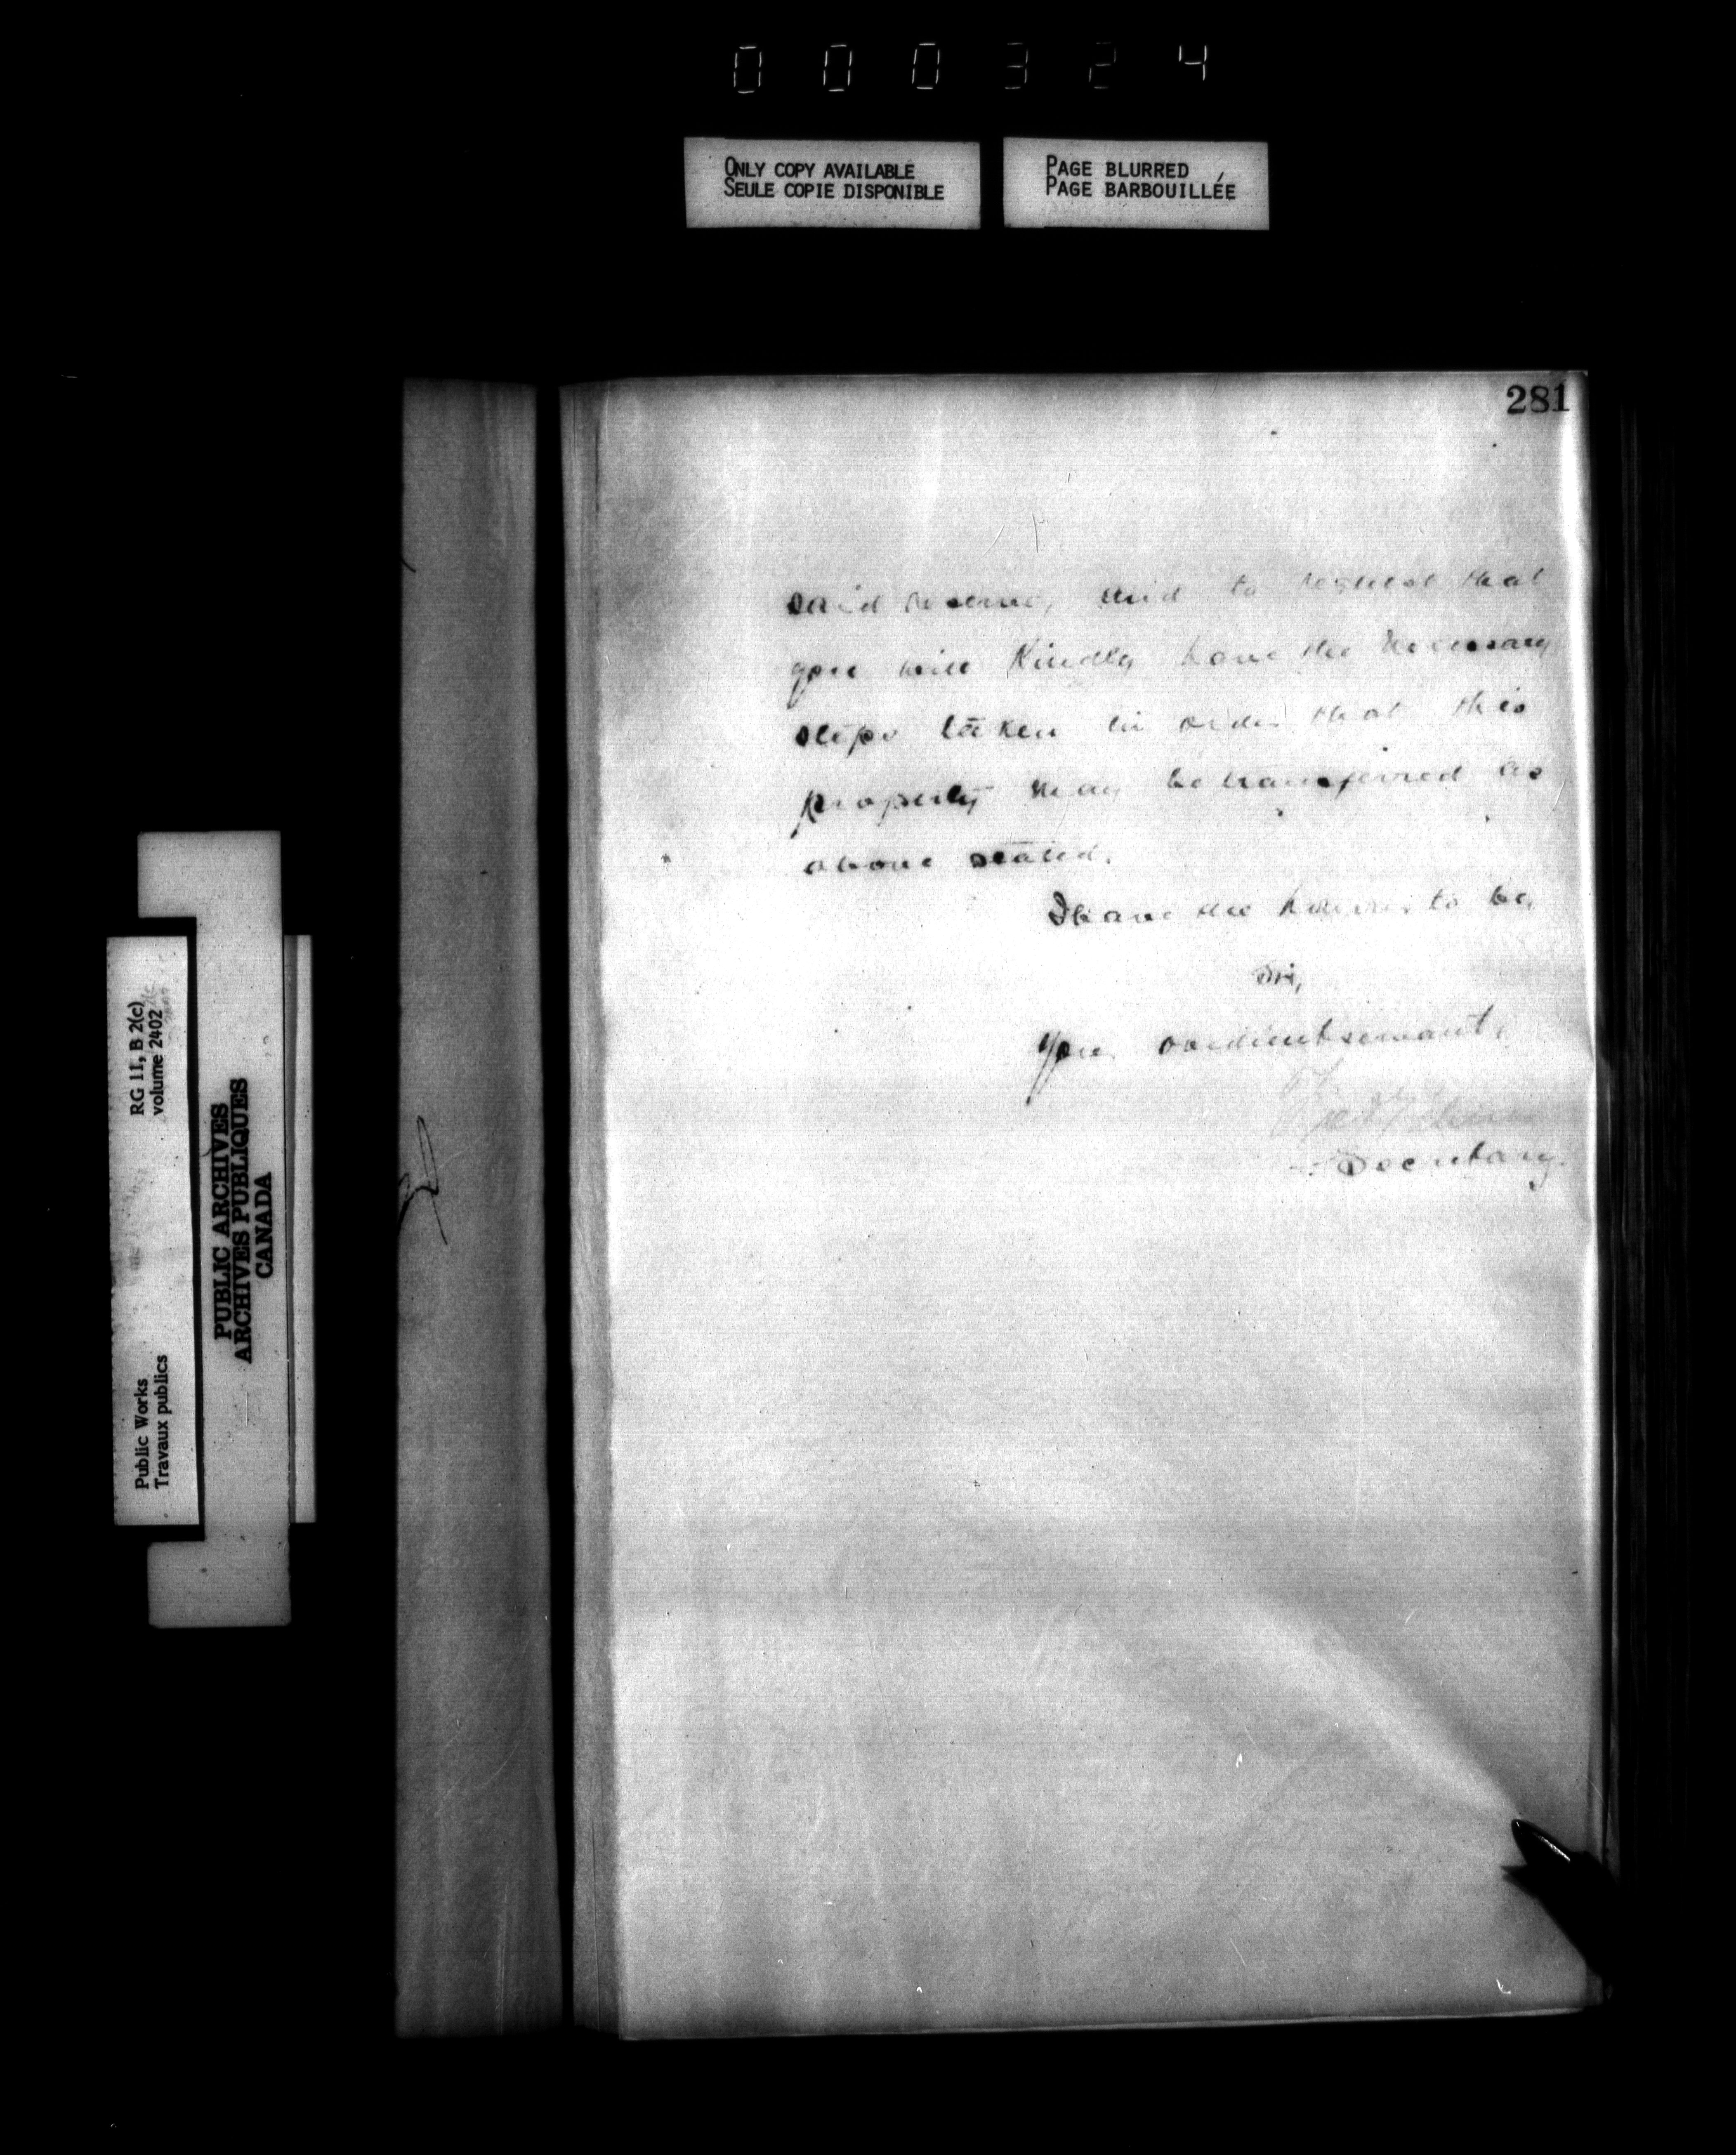 000324
ONLY COPY AVAILABLE
SEULE COPIE DISPONIBLE
PAGE BLURRED
PAGE BARBOUILLÉE
281
said reserve, and to request that
you will kindly have the necessary
steps taken in order that this
property may be transferred as
above stated.
I have the honour to be,
Sir,
Your obedient servant,
Secretary.
RG 11, B 2(c)
volume 2402
Public Works
Travaux publics
PUBLIC ARCHIVES
ARCHIVES PUBLIQUES
CANADA